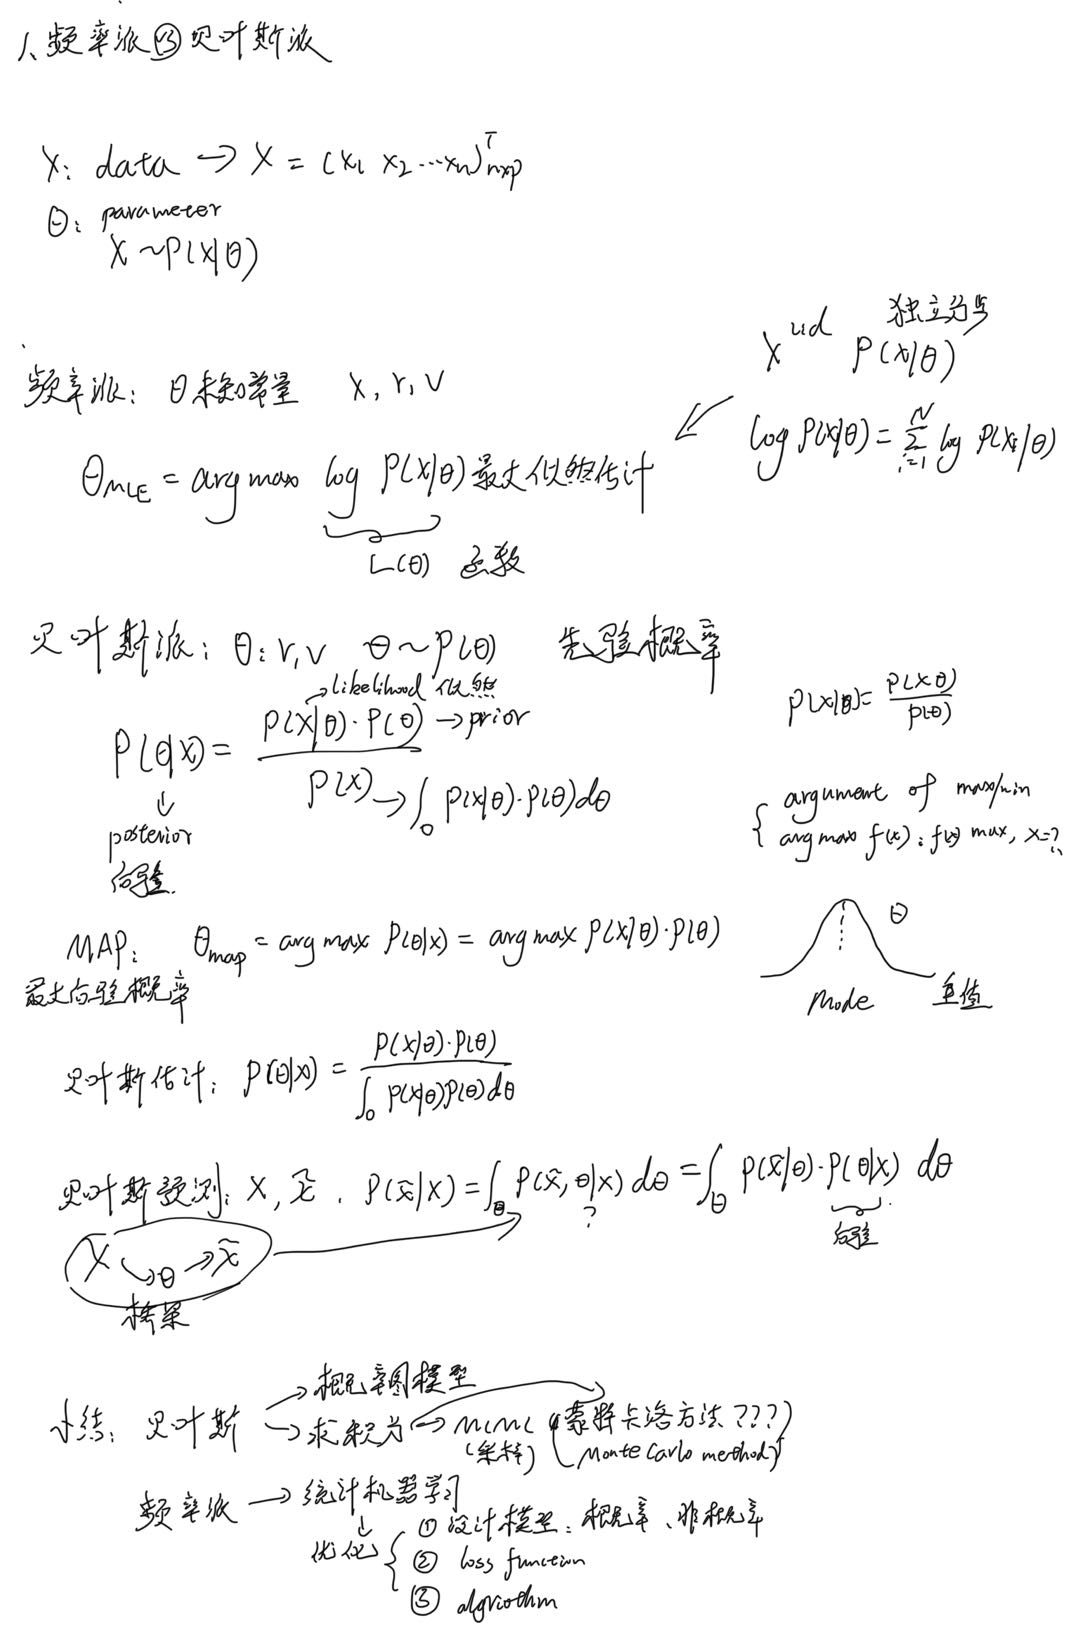 1、频率派 VS 贝叶斯派
X: data → X = (x₁ x₂ ⋯ xₙ)ᵀₙₓₚ
θ: parameter
X ~ P(X|θ)
X iid 独立分步
P(X|θ)
频率派: θ未知常量 X, r, v
log P(X|θ) = ∑ᵢ₌₁ᴺ log P(Xᵢ|θ)
θ_MLE = arg max log P(X|θ) 最大似然估计
L(θ) 函数
贝叶斯派: θ: r, v θ ~ P(θ) 先验概率
→ likelihood 似然
P(θ|X) = P(X|θ)·P(θ) / P(X)
→ prior
→ ∫₀ P(X|θ)·P(θ)dθ
P(X|θ) = P(Xθ) / P(θ)
↓
posterior
后验
{ argument of max/min
arg max f(x): f(x) max, x=?
MAP: θ_map = arg max P(θ|X) = arg max P(X|θ)·P(θ)
最大后验概率
θ
Mode 值
贝叶斯估计: P(θ|X) = P(X|θ)·P(θ) / ∫₀ P(X|θ)P(θ)dθ
贝叶斯预测: X, x̃. P(x̃|X) = ∫_θ P(x̃, θ|X) dθ = ∫_θ P(x̃|θ)·P(θ|X) dθ
?
后验
X → θ → x̃
桥梁
小结: 贝叶斯 → 概率图模型
→ 求积分 → MCMC (蒙特卡洛方法???)
(采样) (Monte Carlo method)
频率派 → 统计机器学习
↓
优化 { ① 设计模型: 概率、非概率
② loss function
③ algriothm